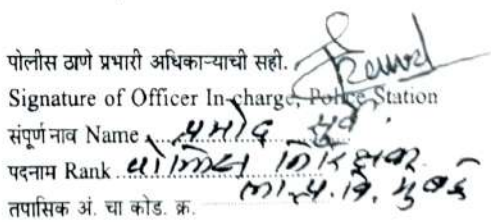 पोलीस ठाणे प्रभारी अधिकाऱ्याची सही.
Signature of Officer In-charge, Police Station
संपूर्ण नाव Name प्रमोद सुर्वे
पदनाम Rank पोलिस निरिक्षक
ला.प्र.वि. मुंबई
तपासिक अं. चा कोड. क्र.